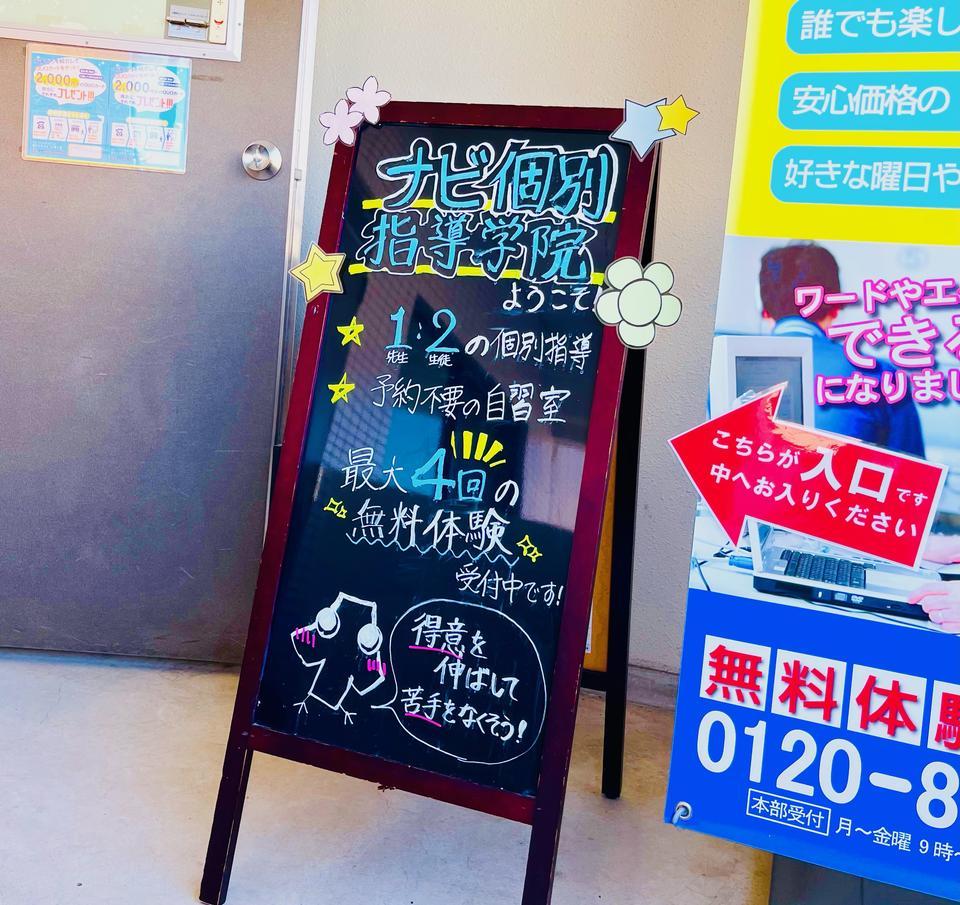 2,000円
プレゼント!!!
2,000円
プレゼント!!!
ナビ個別
指導学院
ようこそ!
1:2の個別指導
先生 生徒
予約不要の自習室
最大4回の
無料体験
受付中です!
得意を
伸ばして
苦手をなくそう!
誰でも楽し
安心価格の
好きな曜日や
ワードやエ
できる
になりまし
こちらが入口です
中へお入りください
無料体験
0120-8
本部受付 月~金曜 9時~